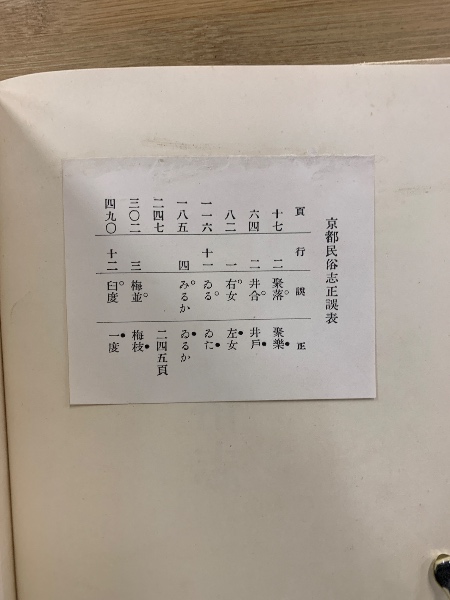 京都民俗志正誤表
頁 行 誤 正
十七 二 聚落 聚樂
六四 二 井合 井戶
八二 一 右女 左女
一一六 十一 ゐる ゐた
一八五 四 みるか ゐるか
二四七 二四五頁
三〇二 三 梅並 梅枝
四九〇 十二 臼度 一度